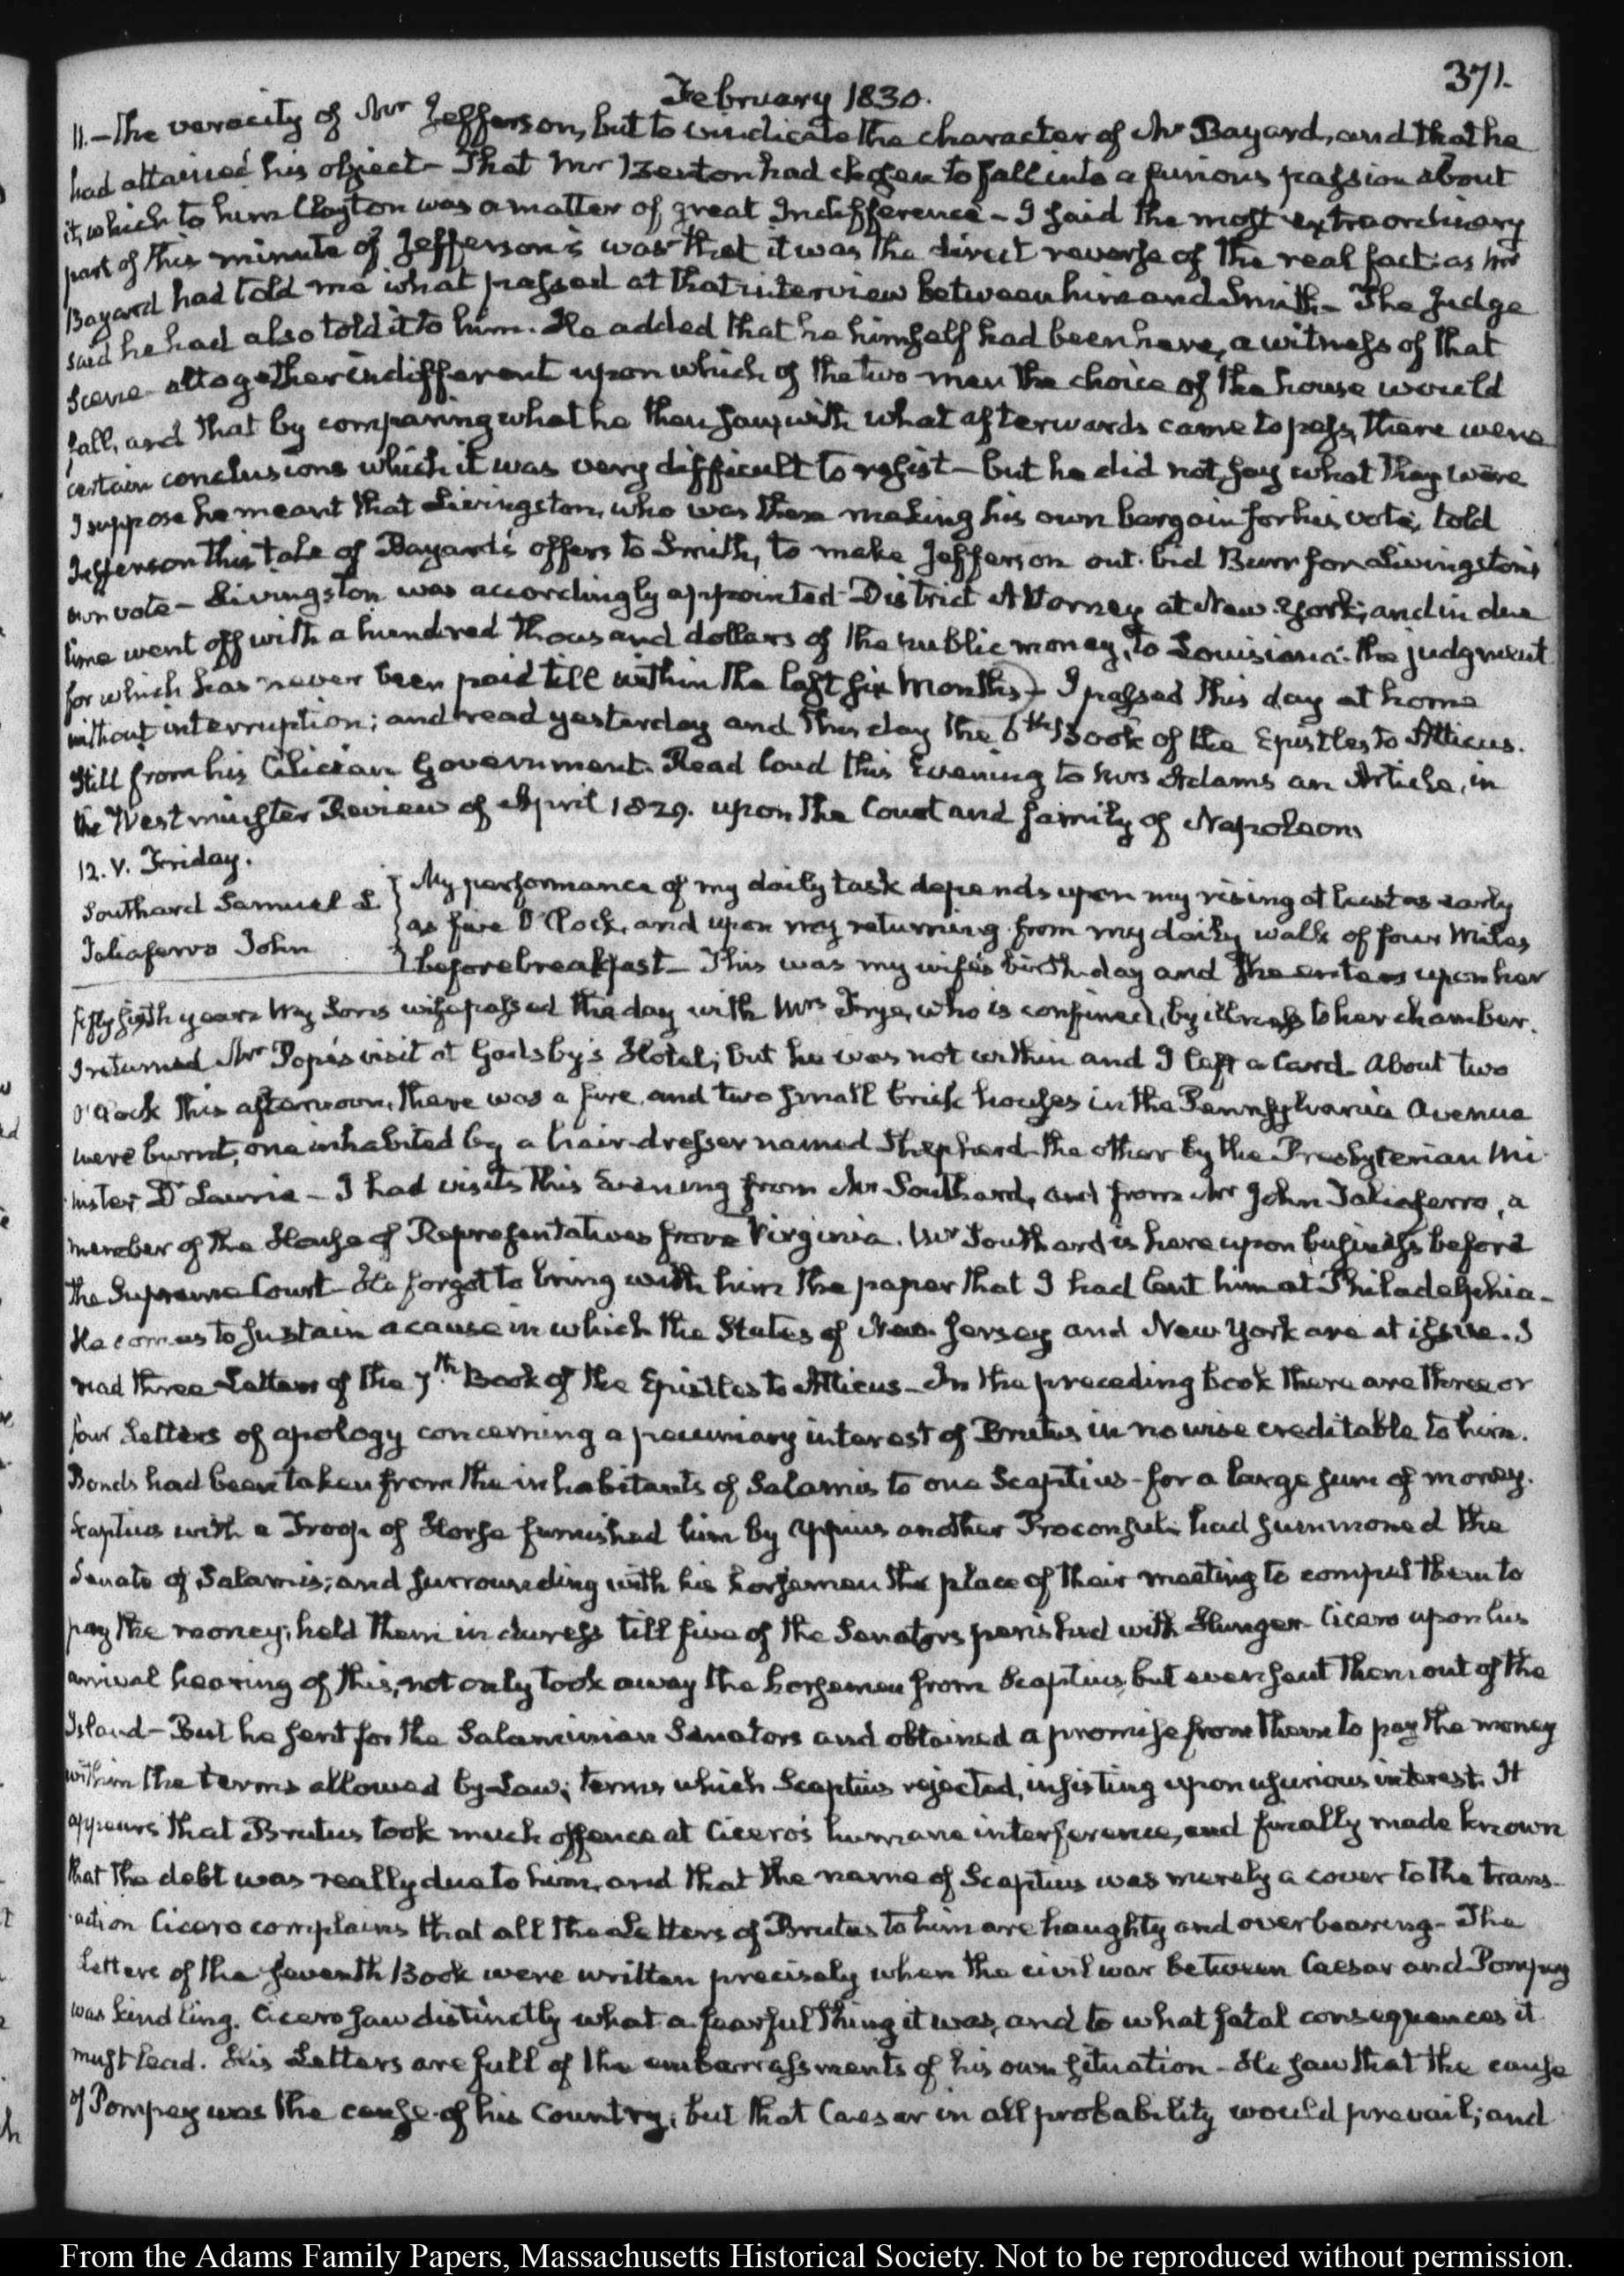 371.
February 1830.
11.—the veracity of Mr Jefferson, but to vindicate the character of Mr Bayard, and that he
had attained his object— That Mr Benton had chosen to fall into a furious passion about
it, which to him Clayton was a matter of great Indifference— I said the most extraordinary
part of this minute of Jefferson's was that it was the direct reverse of the real fact: as Mr
Bayard had told me what passed at that interview between him and Smith— The Judge
said he had also told it to him. He added that he himself had been here, a witness of that
scene altogether indifferent upon which of the two men the choice of the house would
fall, and that by comparing what he then saw, with what afterwards came to pass, there were
certain conclusions which it was very difficult to resist— but he did not say what they were
I suppose he meant that Livingston, who was then making his own bargain for his vote, told
Jefferson this tale of Bayard's offers to Smith, to make Jefferson out-bid Burr for Livingston's
own vote— Livingston was accordingly appointed District Attorney at New-York; and in due
time went off with a hundred thousand dollars of the public money, to Louisiana: the judgment
for which has never been paid till within the last six Months)— I passed this day at home
without interruption; and read yesterday and this day the 6th Book of the Epistles to Atticus.
Still from his Cilician Government. Read loud this Evening to Mrs Adams an Article, in
the Westminster Review of April 1829. upon the Court and family of Napoleon.
12. V. Friday.
Southard Samuel L
Taliaferro John
My performance of my daily task depends upon my rising at least as early
as five O'Clock, and upon my returning from my daily walk of four Miles
before breakfast— This was my wife's birth-day and She enters upon her
fifty sixth year. My Sons wife passed the day with Mrs Frye, who is confined, by illness to her chamber.
I returned Mr Pope's visit at Gadsby's Hotel; but he was not within and I left a Card. About two
O'Clock this afternoon, there was a fire, and two small brick houses in the Pennsylvania Avenue
were burnt; one inhabited by a hair-dresser named Shepherd—the other by the Presbyterian Mi-
nister Dr Laurie— I had visits this Evening from Mr Southard, and from Mr John Taliaferro, a
member of the House of Representatives from Virginia. Mr Southard is here upon business before
the Supreme Court— He forgot to bring with him the paper that I had lent him at Philadelphia—
He comes to sustain a cause in which the States of New-Jersey and New York are at issue. I
read three Letters of the 7th Book of the Epistles to Atticus— In the preceding book there are three or
four Letters of apology concerning a pecuniary interest of Brutus in no wise creditable to him.
Bonds had been taken from the inhabitants of Salamis to one Scaptius—for a large sum of money.
Scaptius with a Troop of Horse furnished him by Appius another Proconsul, had summoned the
Senate of Salamis; and surrounding with his horsemen the place of their meeting to compel them to
pay the money, held them in duress till five of the Senators perished with Hunger. Cicero upon his
arrival hearing of this, not only took away the horsemen from Scaptius, but even sent them out of the
Island— But he sent for the Salaminian Senators and obtained a promise from them to pay the money
within the terms allowed by-Law; terms which Scaptius rejected, insisting upon usurious interest. It
appears that Brutus took much offence at Cicero's humane interference, and finally made known
that the debt was really due to him, and that the name of Scaptius was merely a cover to the trans-
action Cicero complains that all the Letters of Brutus to him are haughty and overbearing— The
Letters of the seventh Book were written precisely when the civil war between Caesar and Pompey
was kindling. Cicero saw distinctly what a fearful thing it was, and to what fatal consequences it
must lead. His Letters are full of the embarrassments of his own situation— He saw that the cause
of Pompey was the cause of his Country; but that Caesar in all probability would prevail; and
From the Adams Family Papers, Massachusetts Historical Society. Not to be reproduced without permission.